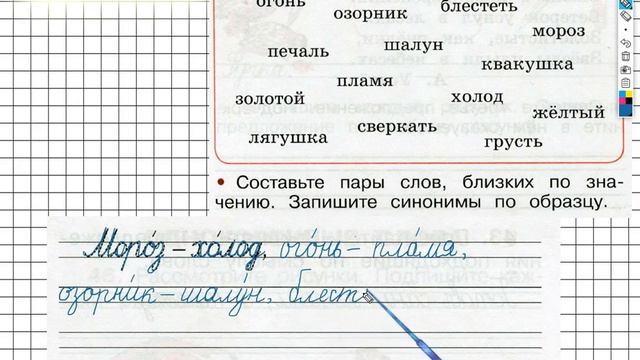 огонь
озорник
блестеть
мороз
печаль
шалун
квакушка
пламя
золотой
холод
жёлтый
сверкать
лягушка
грусть
• Составьте пары слов, близких по зна-
чению. Запишите синонимы по образцу.
Моро́з – хо́лод, ого́нь – пла́мя,
озорни́к – шалу́н, блест